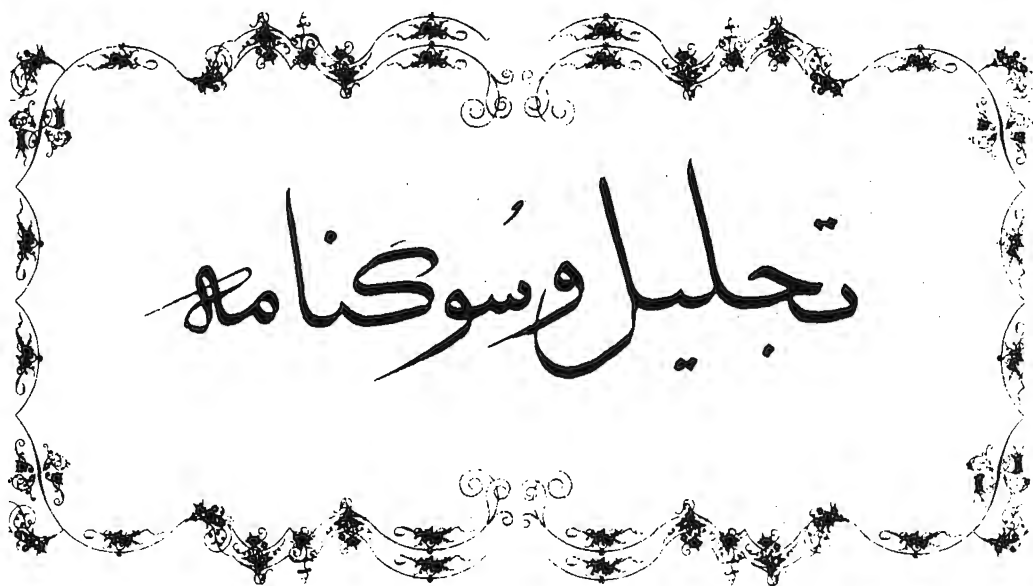 تجلیل و سوکنامه